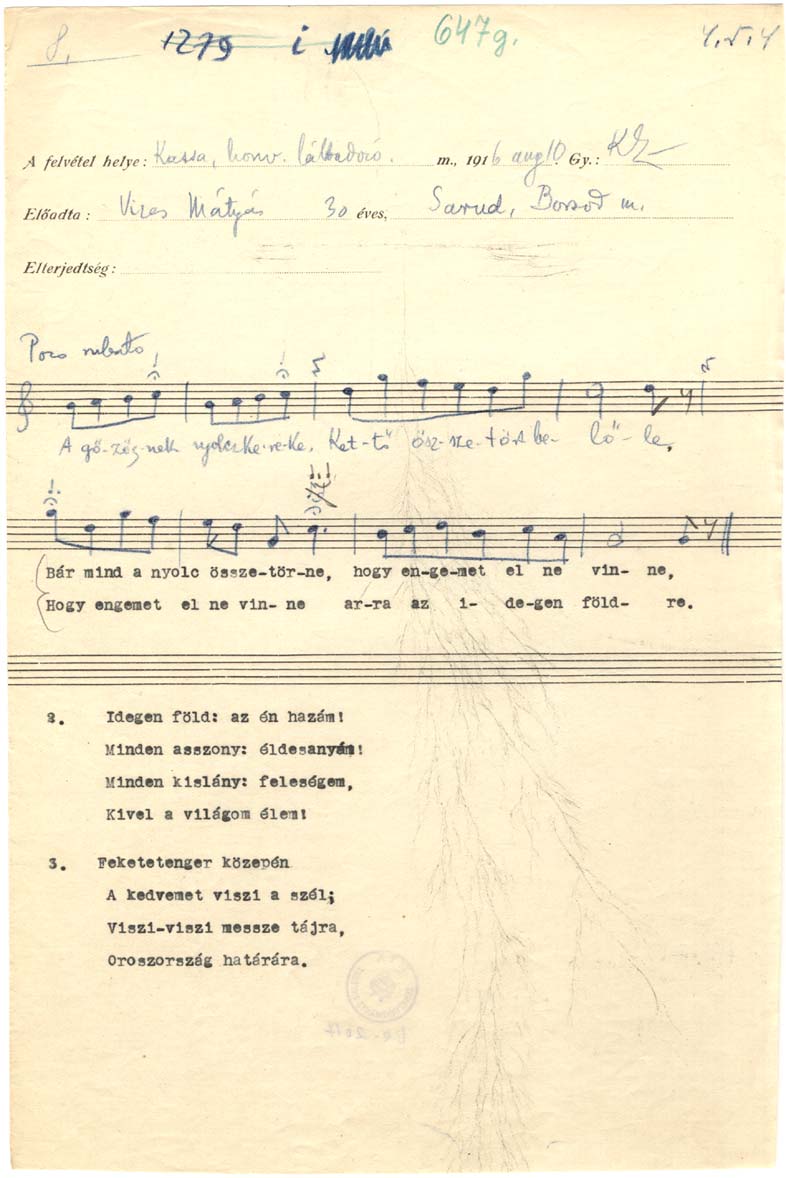 8. 1279 i 647g. 4.5.4
A felvétel helye: Kassa, honv. lábbadozó. m., 1916 aug 10. Gy.: KZ
Előadta: Vizes Mátyás 30 éves, Sarud, Borsod m.
Elterjedtség:
Poco rubato
A gő-zös-nek nyolc ke-re-ke, Ket-tő ösz-sze-tört be-lő-le,
Bár mind a nyolc össze-tör-ne, hogy en-ge-met el ne vin-ne,
Hogy engemet el ne vin-ne ar-ra az i-de-gen föld-re.
2. Idegen föld: az én hazám!
Minden asszony: éldesanyám!
Minden kislány: feleségem,
Kivel a világom élem!
3. Feketetenger közepén
A kedvemet viszi a szél;
Viszi-viszi messze tájra,
Oroszország határára.